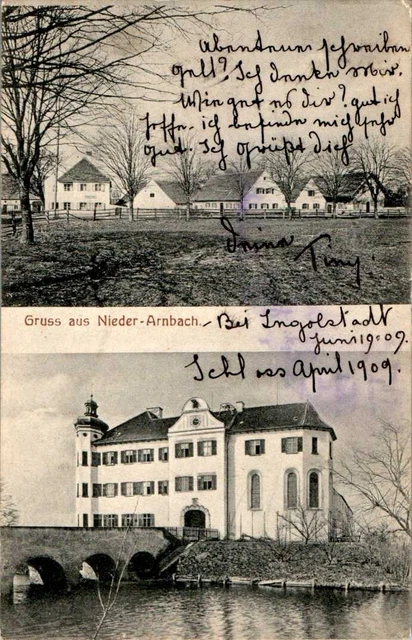 Abenteuer schreiben
gelt? Ich denke mir.
Wie get es dir? gut ich
hoffe. ich befinde mich sehr
gut. Ich grüßt dich
Deine Tiny.
Gruss aus Nieder-Arnbach. - Bei Ingolstadt
Juni 19.09.
Schloss April 1909.